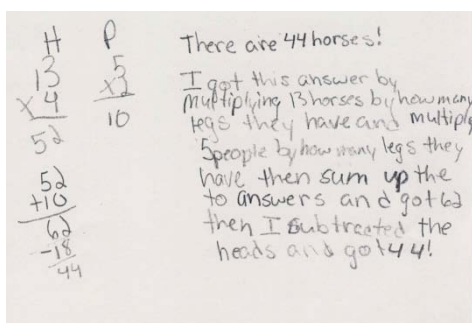 H P
13 5
x4 x2
52 10
52
+10
62
-18
44
There are 44 horses!
I got this answer by
multiplying 13 horses by how many
legs they have and multiply
5 people by how many legs they
have then sum up the
to answers and got 62
then I subtracted the
heads and got 44!